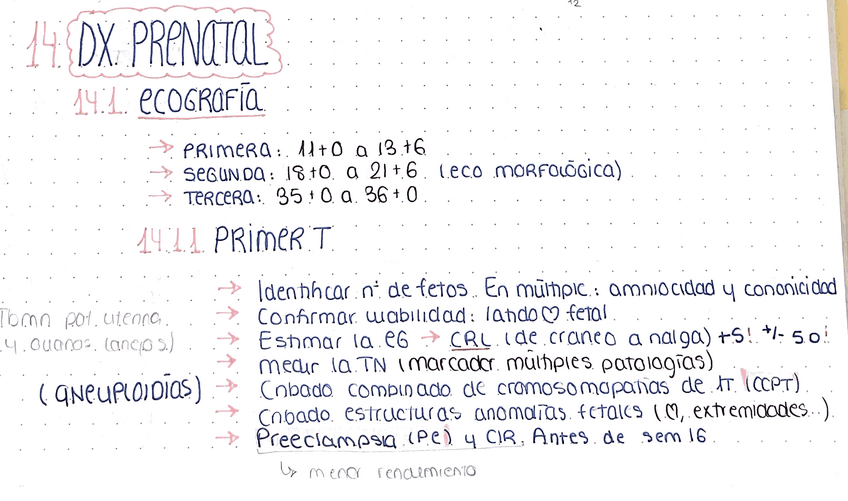 14. DX. PRENATAL
14.1. ECOGRAFÍA
→ PRIMERA: 11+0 a 13+6
→ SEGUNDA: 18+0 a 21+6 (eco MORFOLÓGICA)
→ TERCERA: 35+0 a 36+0
14.1.1. PRIMER T
→ Identificar nº de fetos. En múltiple: amniocidad y corionicidad
→ Confirmar viabilidad: latido ♡ fetal
→ Estimar la EG → CRL (de craneo a nalga)
→ medir la TN (marcador múltiples patologías)
(aneuploidías) → Cribado combinado de cromosomopatías de 1T (CCPT)
→ Cribado estructuras anomalías fetales (♡, extremidades..)
→ Preeclampsia (Pe) y CIR. Antes de sem 16
↳ menor rendimiento